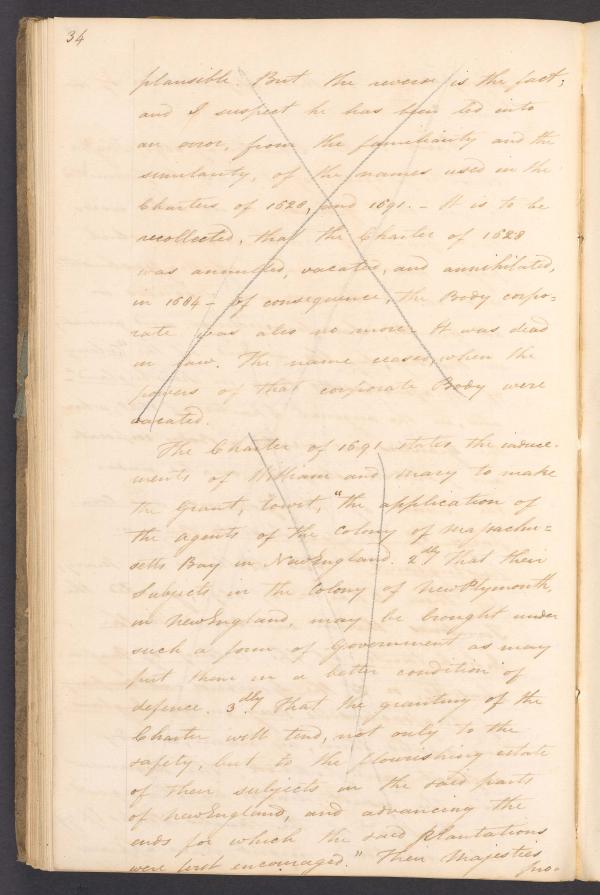 34
plausible. But the reverse is the fact;
and I suspect he has been led into
an error, from the familiarity and the
similarity, of the names used in the
Charters of 1628, and 1691. - It is to be
recollected, that the Charter of 1628
was annulled, vacated, and annihilated,
in 1684 - of consequence, the Body corpo=
rate was also no more. It was dead
in law. The name ceased, when the
powers of that corporate Body were
vacated.
The Charter of 1691 states the induce-
ments of William and Mary to make
the Grant, towit, "the application of
the agents of the Colony of Massachu=
setts Bay in NewEngland. 2dly That their
Subjects in the Colony of NewPlymouth,
in NewEngland, may be brought under
such a form of Government as may
put them in a better condition of
defence. 3dly That the granting of the
Charter will tend, not only to the
safety, but to the flourishing estate
of their subjects in the said parts
of NewEngland, and advancing the
ends for which the said Plantations
were first encouraged." Their Majesties
pro-